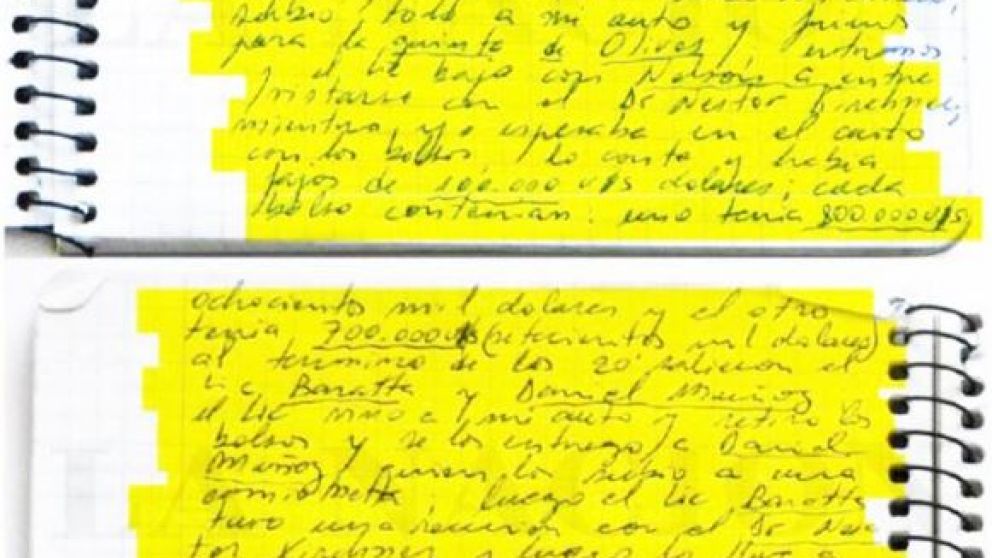 subio todo a mi auto y fuimos
para la quinta de Olivos, entramos
y el lic bajo con Nelson a entre
vistarse con el Dr Nestor Kirchner,
mientras yo esperaba en el auto
con los bolsos, lo conte y habia
fajos de 100.000 U$S dolares; cada
bolso contenian: uno tenia 800.000U$S
ochocientos mil dolares y el otro
tenia 700.000U$S (setecientos mil dolares)
al termino de los 20' salieron el
Lic Baratta y Daniel Muñoz
el Lic vino a mi auto y retiro los
bolsos y se los entrego a Daniel
Muñoz, quien lo subio a una
camioneta; luego el Lic Baratta
tuvo una reunion con el Dr Nes
tor Kirchner y luego lo lleve